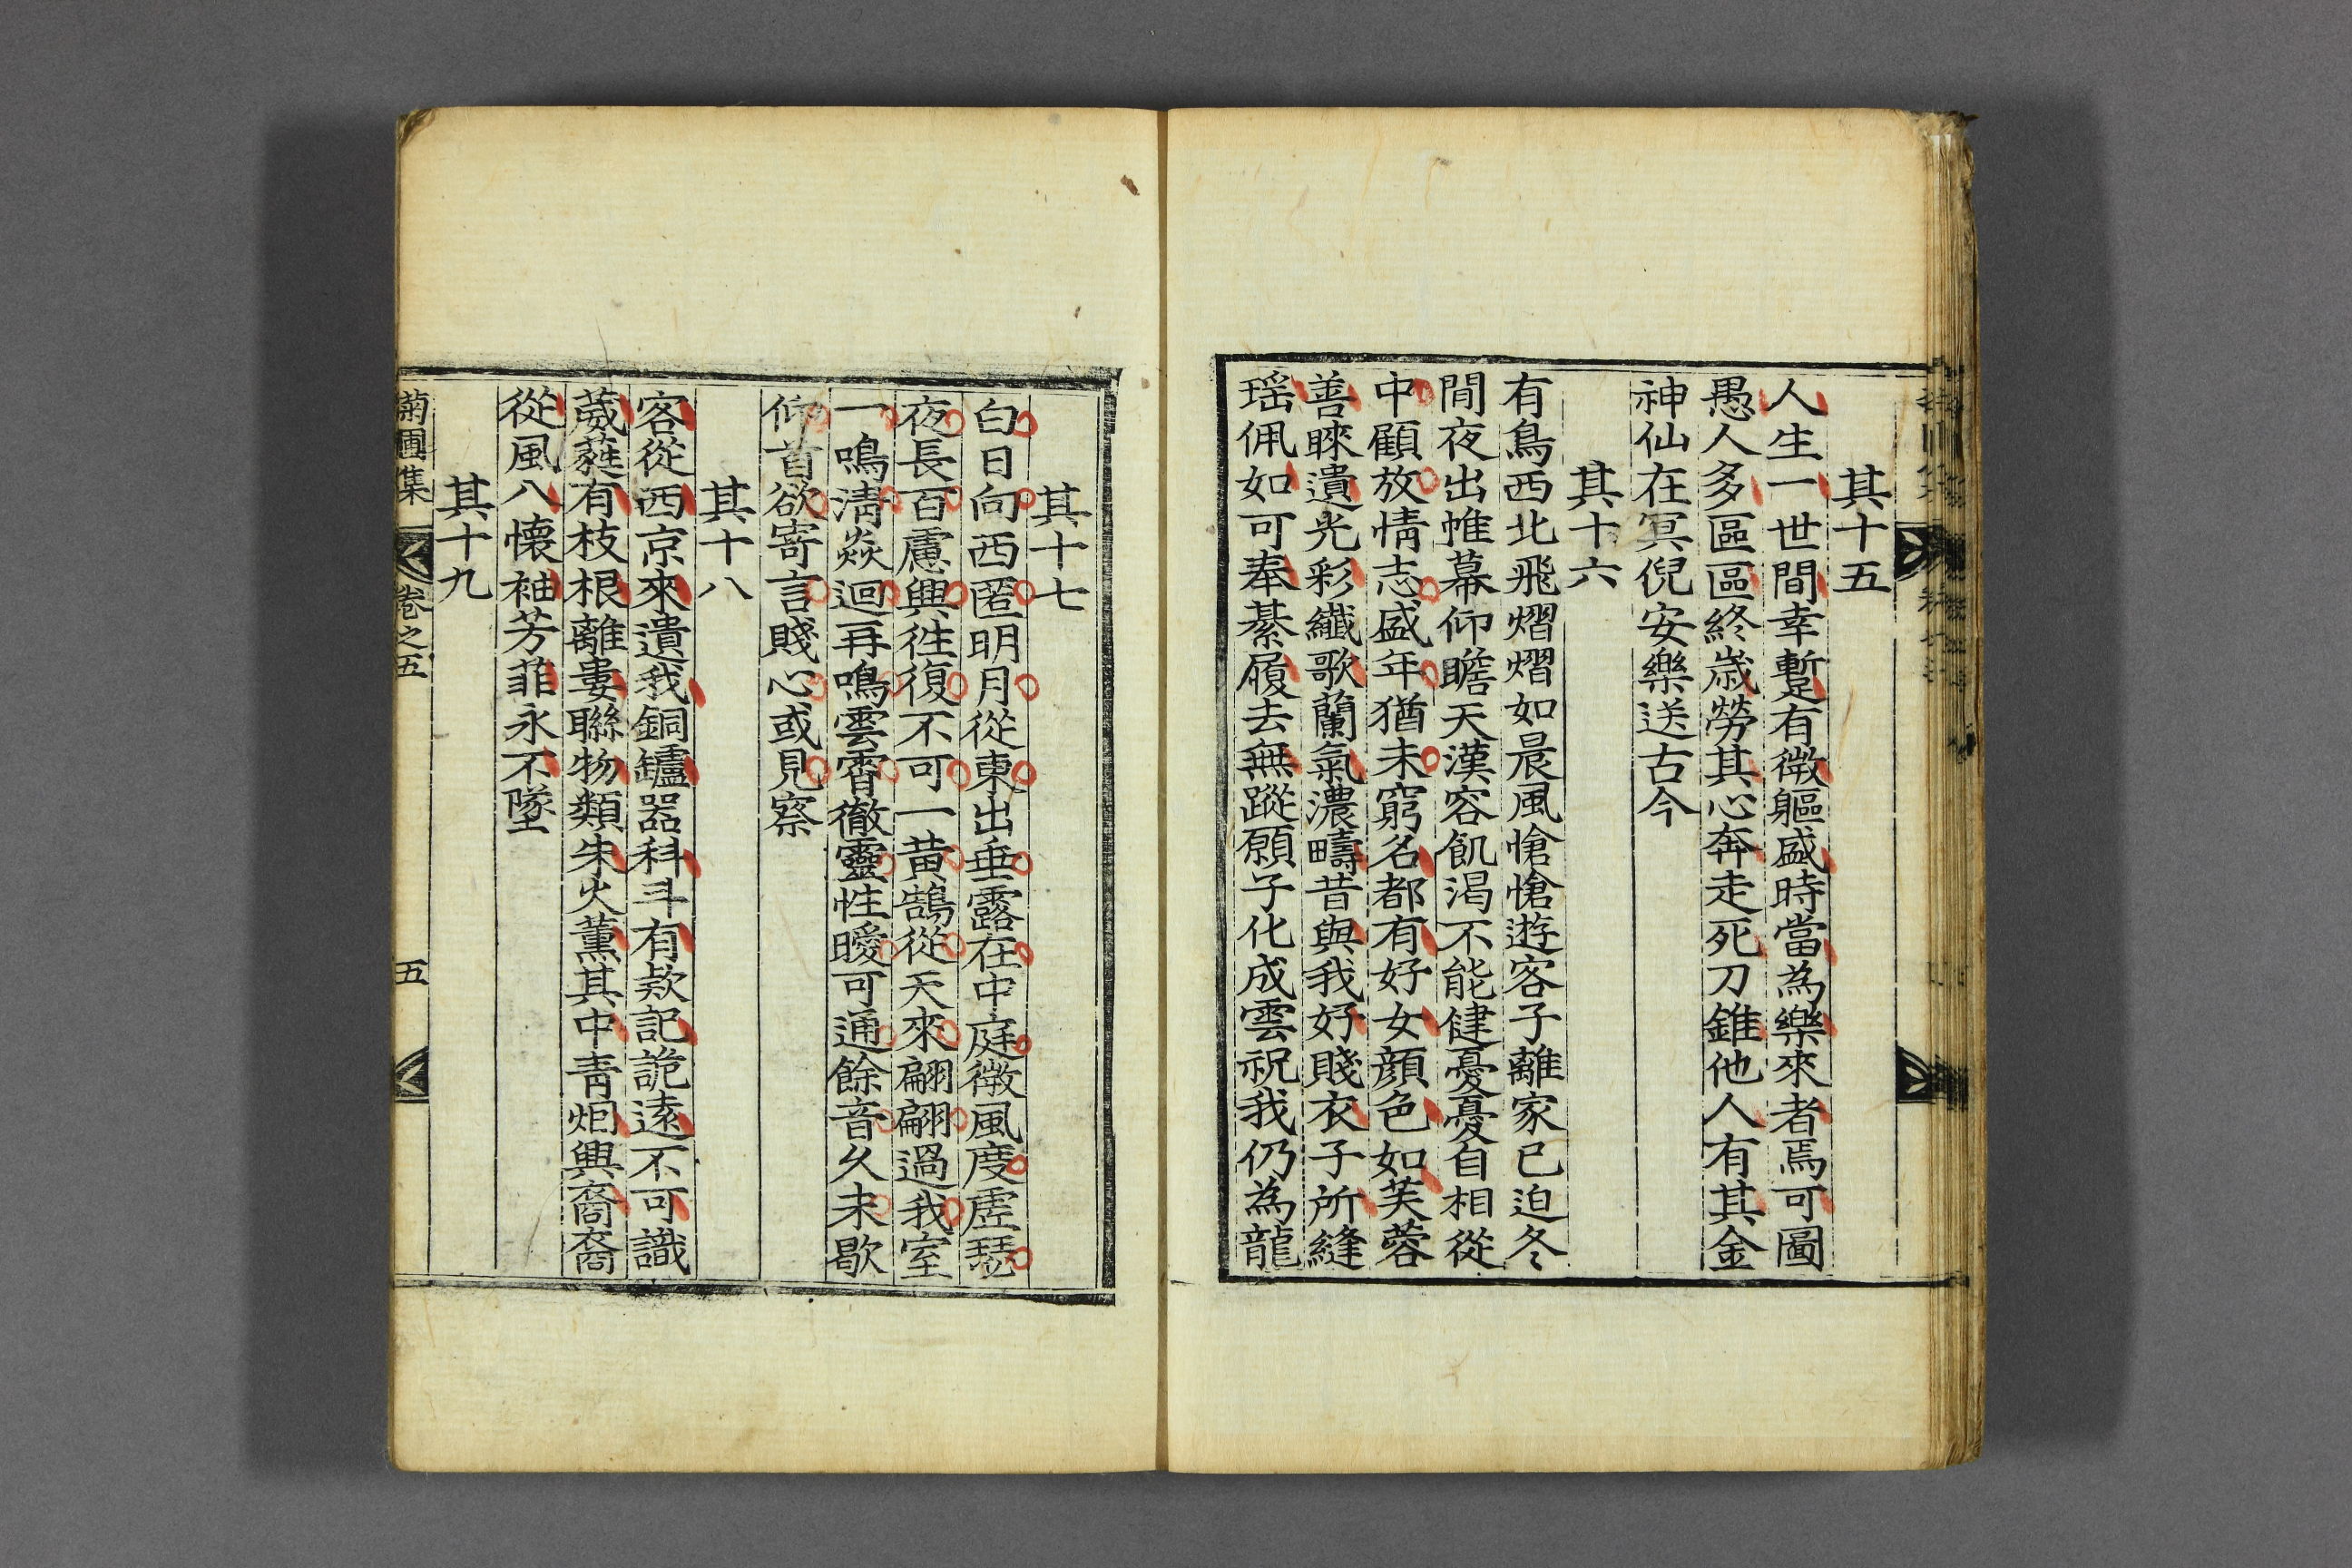 其十五
人生一世間幸蹔有微軀盛時當為樂來者焉可圖
愚人多區區終歲勞其心奔走死刀錐他人有其金
神仙在冥倪安樂送古今
其十六
有鳥西北飛熠熠如晨風愴愴遊客子離家已迫冬
閒夜出帷幕仰瞻天漢容飢渴不能健憂憂自相從
中顧放情志盛年猶未窮名都有好女顔色如芙蓉
善睞遺光彩纖歌蘭氣濃疇昔與我好賤衣子所縫
瑶佩如可奉綦履去無蹤願子化成雲祝我仍為龍
其十七
白日向西匿明月從東出垂露在中庭微風度虛瑟
夜長百慮興徃復不可一黄鵠從天來翩翩過我室
一鳴淸焱迴再鳴雲霄徹靈性曖可通餘音久未歇
仰首欲寄言賤心或見察
其十八
客從西京來遺我銅鑪器科斗有欵記詭遠不可識
葳蕤有枝根離婁聯物類朱火薰其中靑烟興裔裔
從風八懷袖芳菲永不墜
其十九
菊圃集
卷之五
五